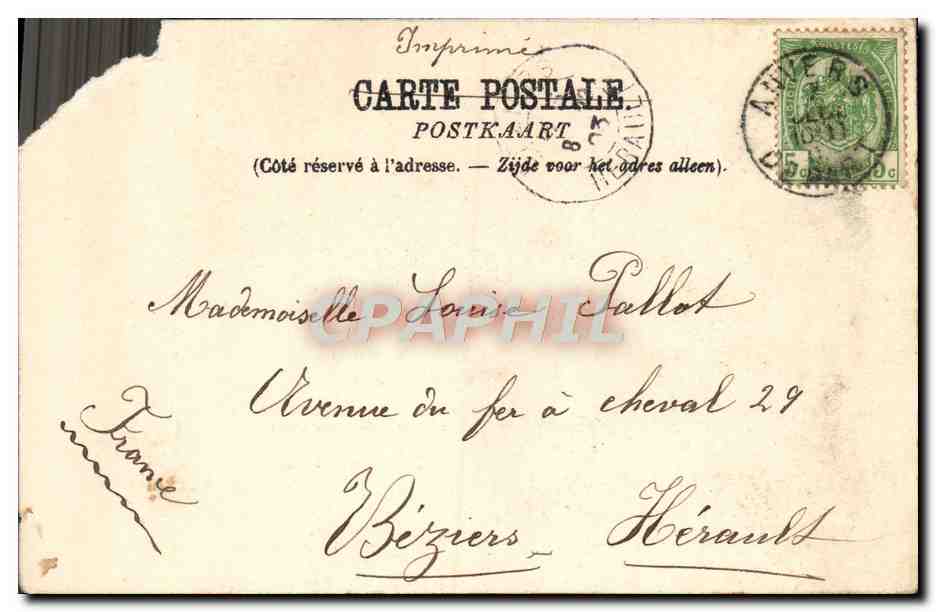 Imprimé
CARTE POSTALE.
POSTKAART
(Côté réservé à l'adresse. — Zijde voor het adres alleen).
ANVERS
DÉPART
5 c 5 c
8
03
HERAULT
CPAPHIL
Mademoiselle Louise Pallot
Avenue du fer à cheval 29
Béziers Hérault
France